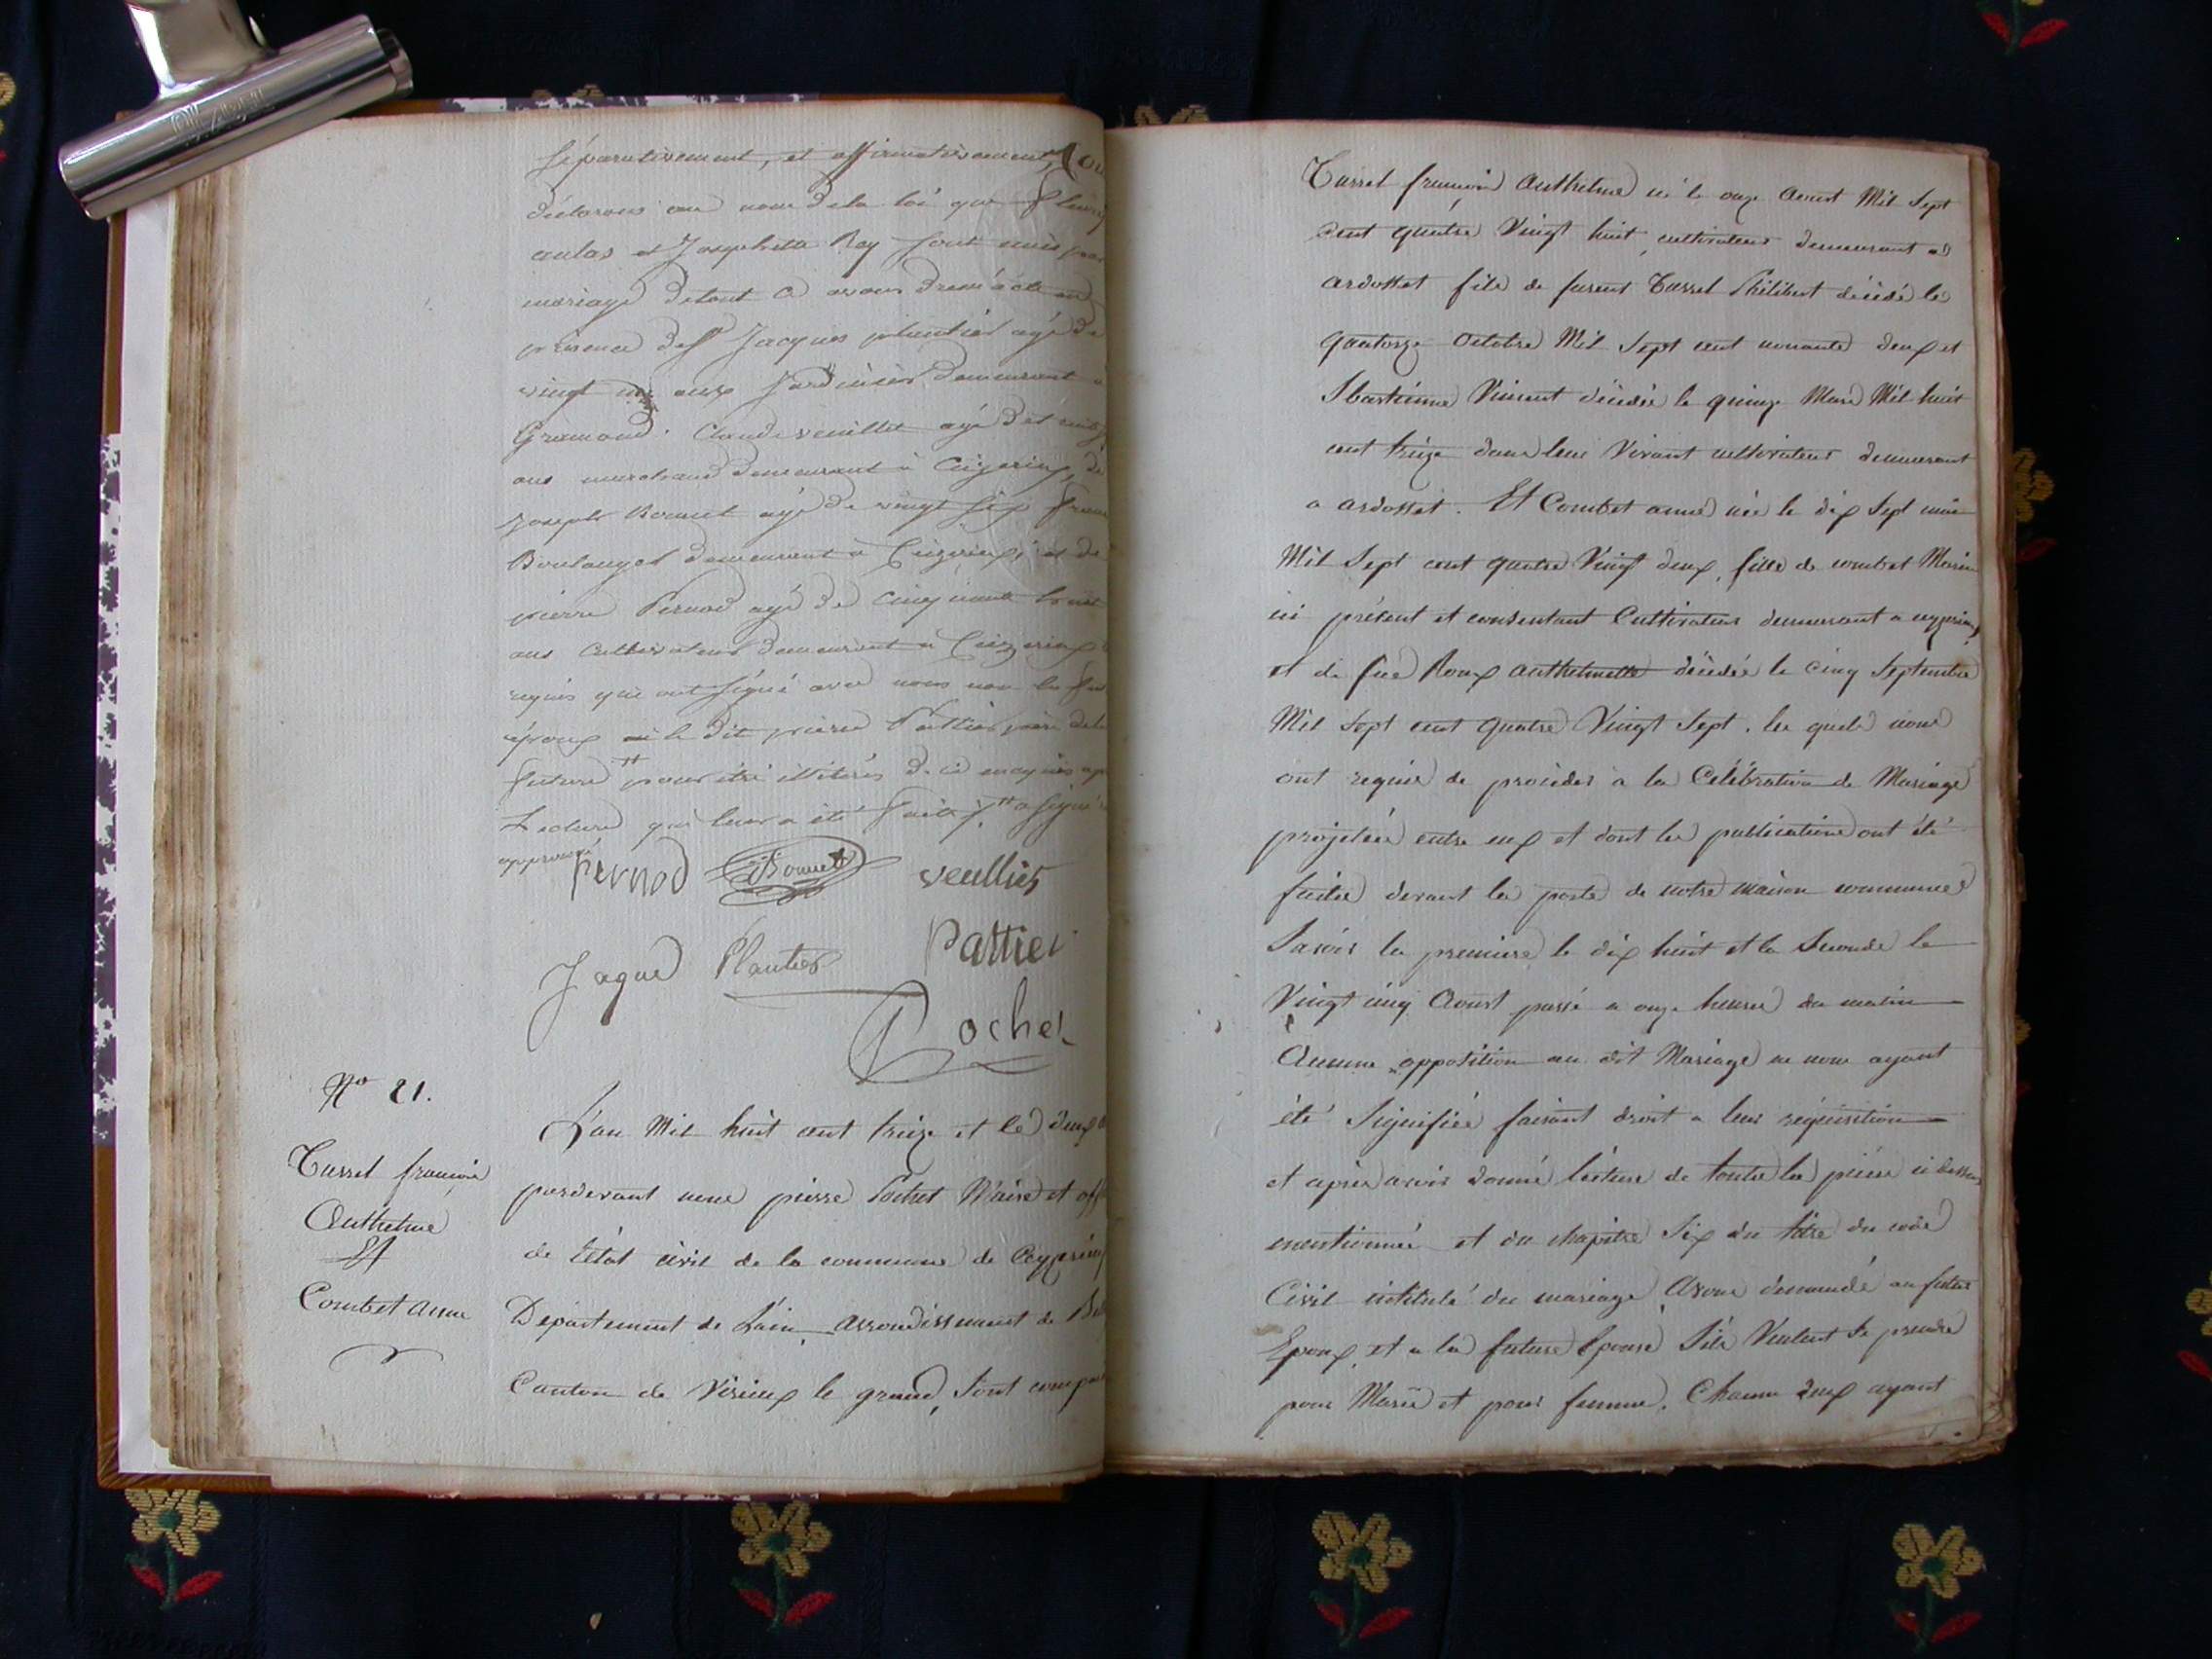 séparativement, et affirmativement,
déclarons au nom de la loi que
aulas et Josephette Rey sont unis par
mariage de tout ce avons dressé acte en
présence des Srs Jacques plantier agé de
vingt ans Jardinier demeurant a
Gramond. Claude veuillet agé de
ans marchand demeurant à Ceizerieux, de
Joseph Bonnet agé de vingt six
Boulanger demeurant à Ceizerieux, et de
pierre Pernod agé de cinquante huit
ans Cultivateur demeurant a Ceizerieux
requis qui ont signé avec nous non les
époux ni le dit pierre Pattier père de la
future pour être illitérés de ce enquis
Lecture qui leur a été faite a signé
approuvé
Pernod Bonnet veullies
Jaque Plantier Pattier
Pochet
No 21.
Tussel francois
Anthelme
Et
Combet anne
L'an Mil huit cent treize et le deux
pardevant nous pierre Pochet Maire et off
de l'état civil de la commune de Ceyzerieux
Département de L'ain, arrondissement de Bel
Canton de Virieux le grand, sont comparu
Tussel francois Anthelme né le onze Aoust Mil Sept
cent quatre Vingt huit, cultivateur demeurant a
ardosset fils de furent Tussel Philibert décédé le
quatorze octobre Mil Sept cent nonante deux et
Sbastienne Vincent décédée le quinze Mars Mil huit
cent treize dans leur Vivant cultivateur demeurant
a ardosset. Et Combet anne née le dix Sept mai
Mil Sept cent quatre Vingt deux, fille de combet Marin
ici présent et consentant Cultivateur demeurant a ceyzerieux
et de feue Roux anthelmette décédée le cinq Septembre
Mil Sept cent quatre Vingt Sept. les quels nous
ont requis de procéder à la Célébration de Mariage
projettée entre eux et dont les publications ont été
faites devant la porte de notre maison commune
Savoir la premiere le dix huit et la Seconde le
Vingt cinq Aoust passé a onze heures du matin
Aucune opposition au dit Mariage ne nous ayant
été Signifiée faisant droit a leur réquisition
et après avoir donné lecture de toutes les pièces ci dessus
mentionnés et du chapitre Six du titre du code
Civil intitulé du mariage, Avons demandé au futur
Epoux, et a la future Epouse S'ils Veulent Se prendre
pour Mari et pour femme. Chacun deux ayant